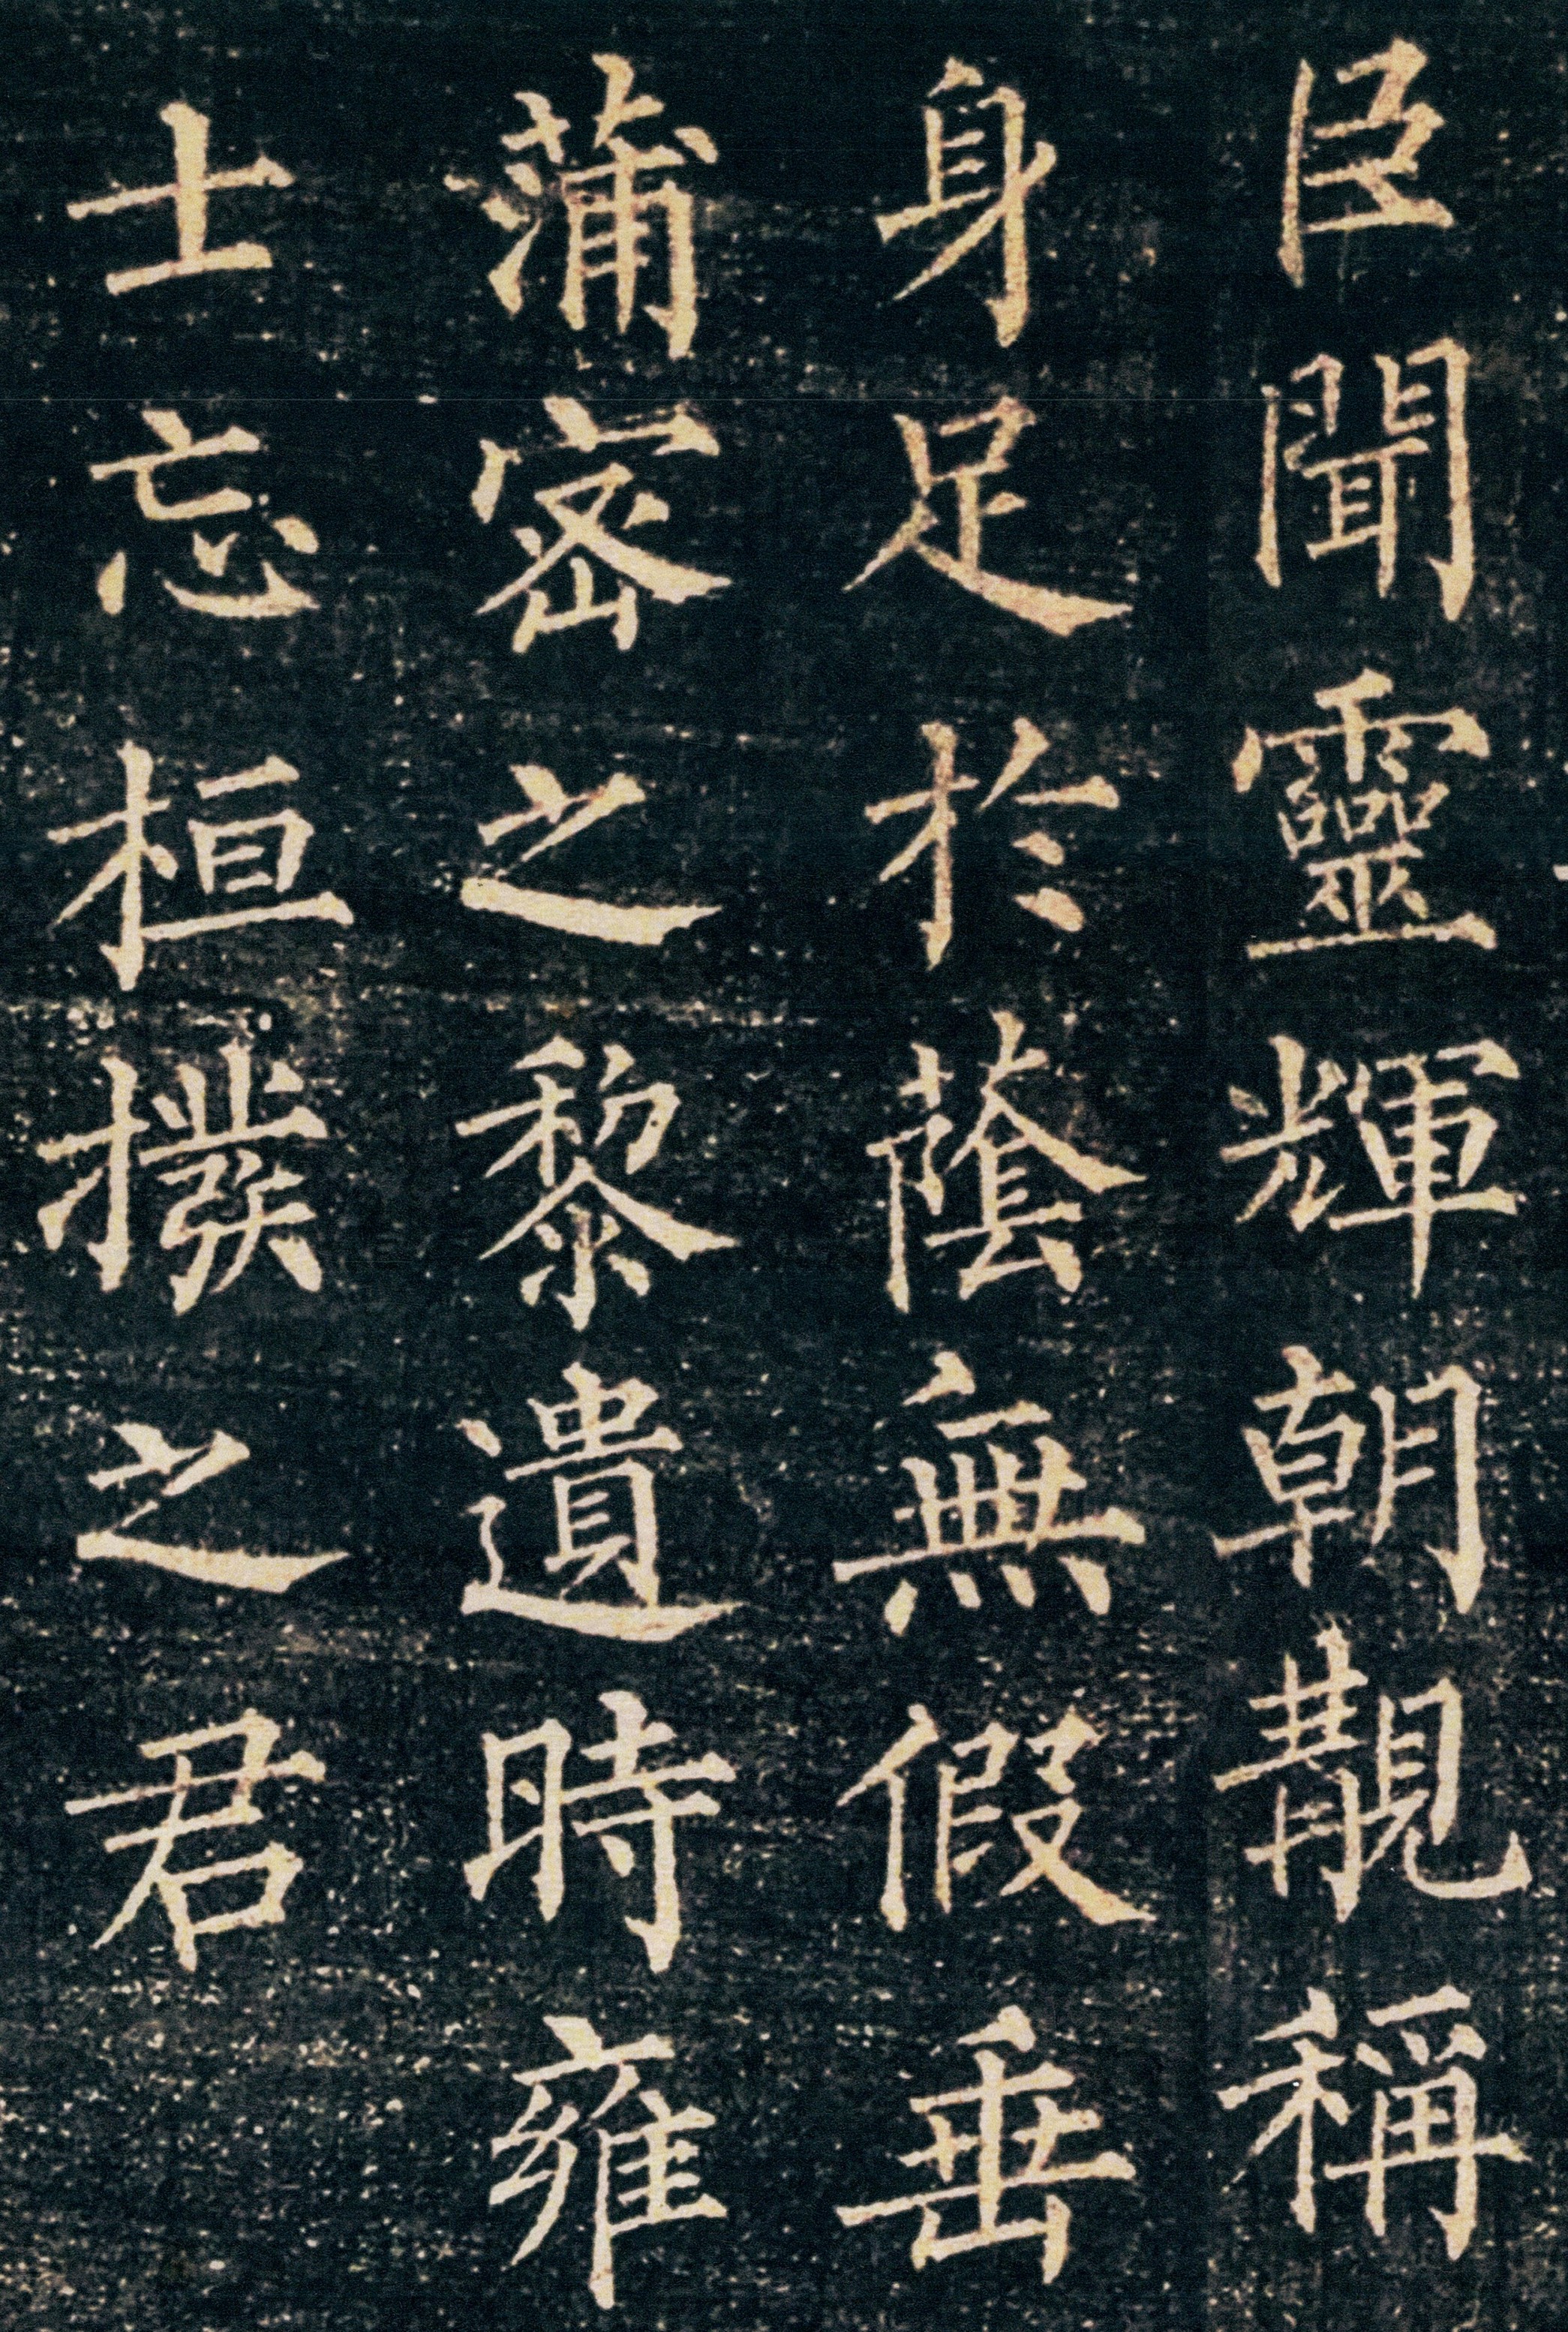 臣聞靈輝朝覯稱
身足於蔭無假垂
蒲密之黎遺時雍
士忘桓撥之君